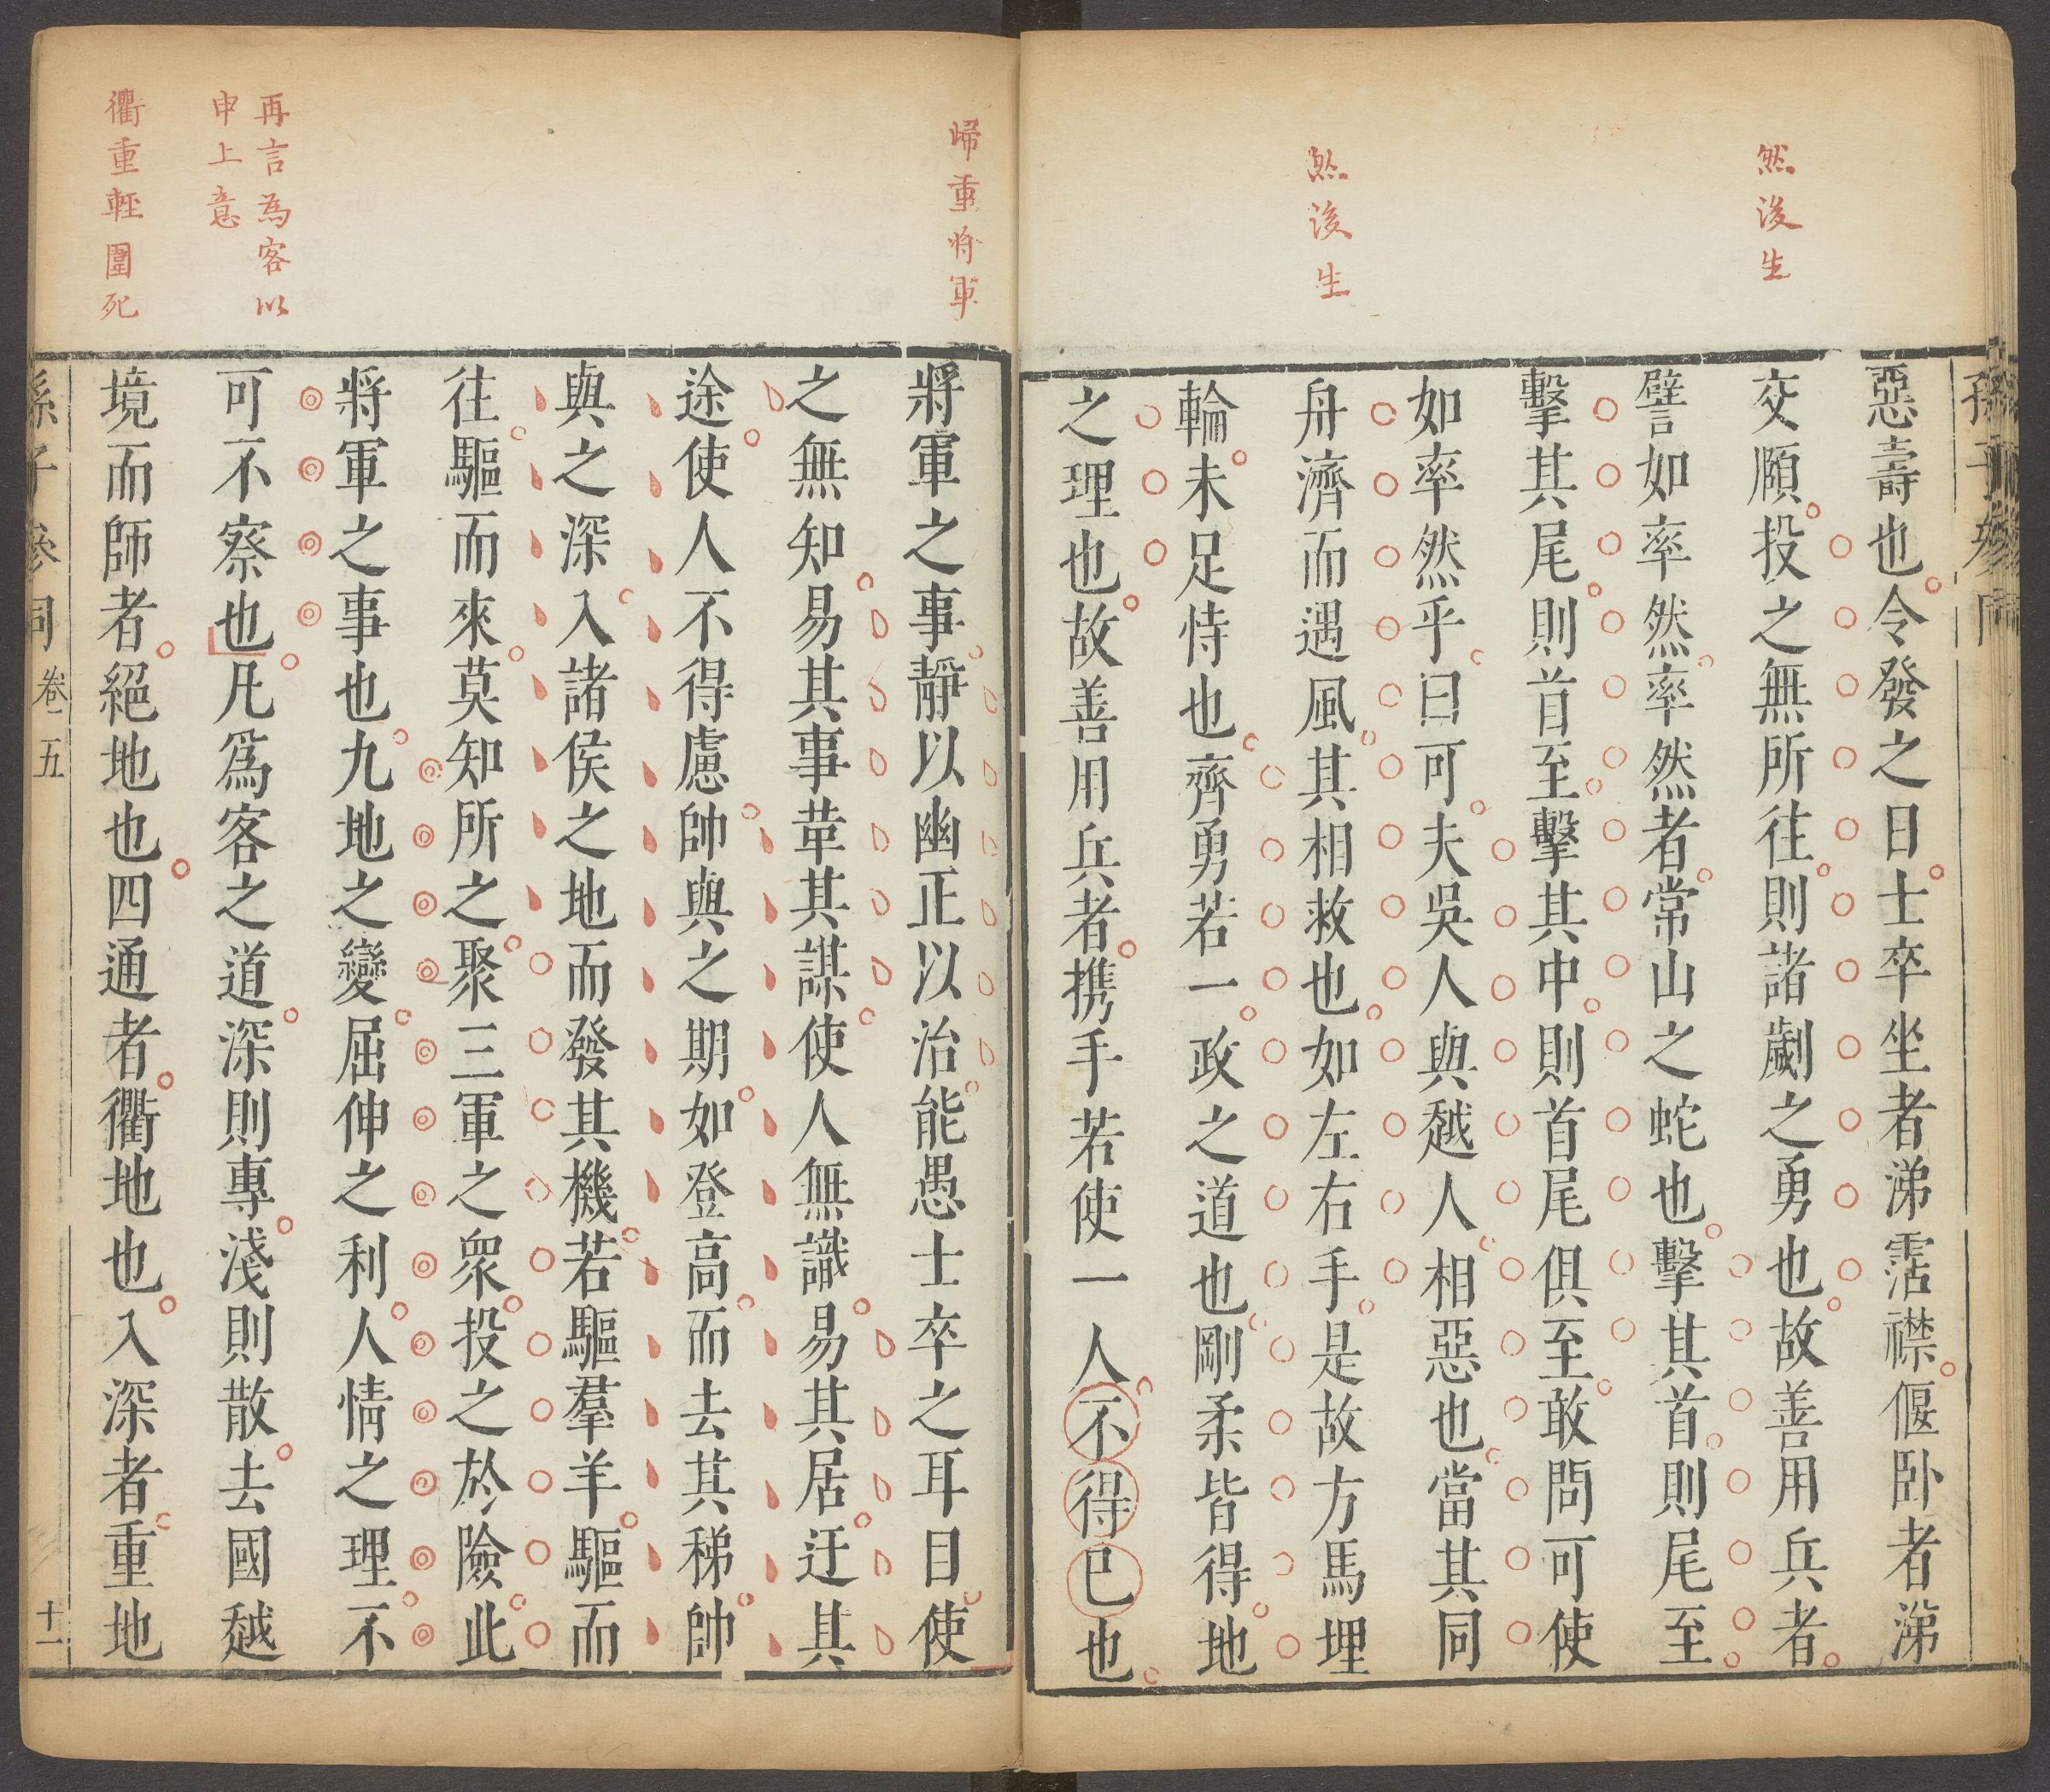 然後生
然後生
惡壽也令發之日士卒坐者涕霑襟偃卧者涕
交頤投之無所往則諸劌之勇也故善用兵者
譬如率然率然者常山之蛇也擊其首則尾至
擊其尾則首至擊其中則首尾俱至敢問可使
如率然乎曰可夫吳人與越人相惡也當其同
舟濟而遇風其相救也如左右手是故方馬埋
輪未足恃也齊勇若一政之道也剛柔皆得地
之理也故善用兵者携手若使一人不得已也
歸重將軍
再言為客以
申上意
衢重輕圍死
將軍之事靜以幽正以治能愚士卒之耳目使
之無知易其事革其謀使人無識易其居迂其
途使人不得慮帥與之期如登高而去其梯帥
與之深入諸侯之地而發其機若驅羣羊驅而
往驅而來莫知所之聚三軍之衆投之於險此
將軍之事也九地之變屈伸之利人情之理不
可不察也凡爲客之道深則專淺則散去國越
境而師者絕地也四通者衢地也入深者重地
孫子參同 卷五 十一